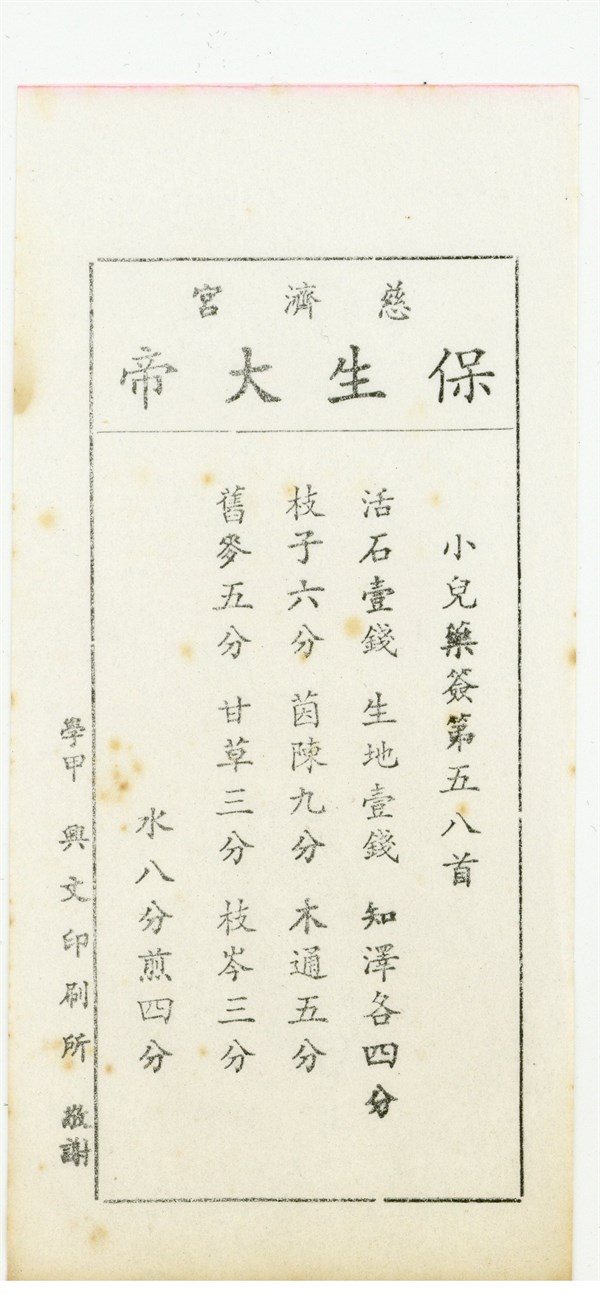 慈濟宮
保生大帝
小兒藥簽第五八首
活石壹錢 生地壹錢 知澤各四分
枝子六分 茵陳九分 木通五分
舊麥五分 甘草三分 枝岑三分
水八分煎四分
學甲 興文印刷所 敬謝